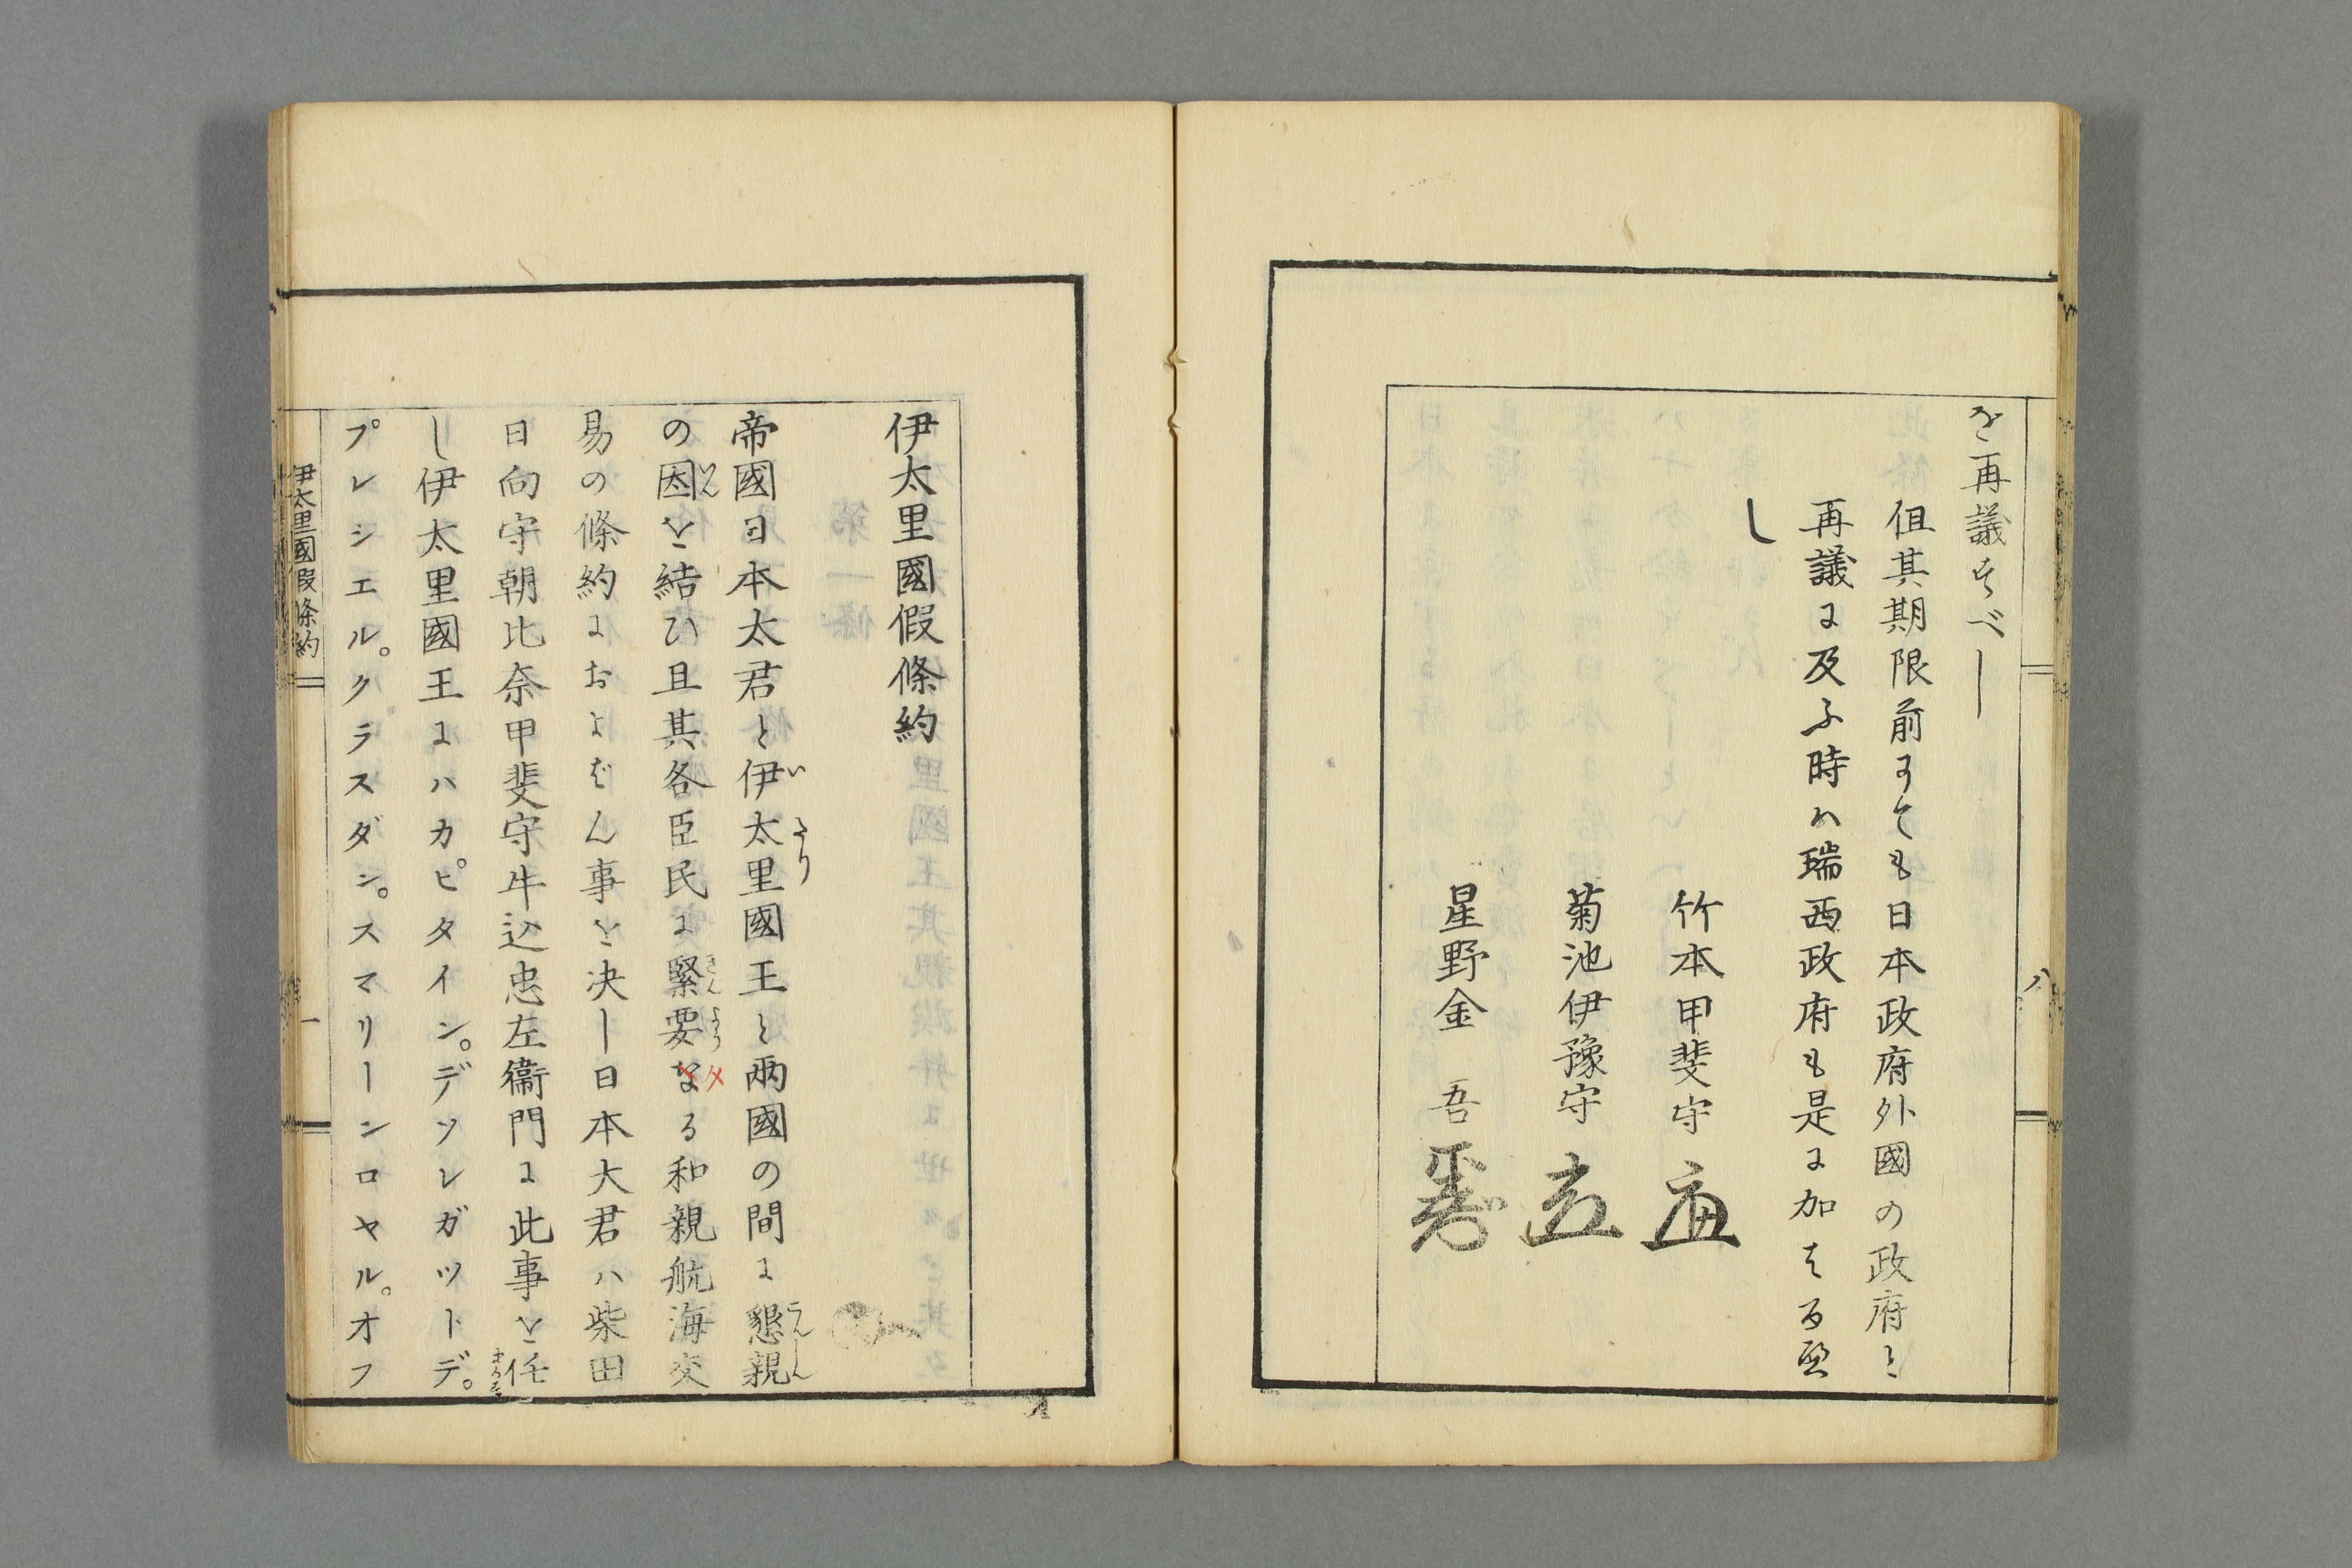 を再議すべし
但其期限前にても日本政府外國の政府と
再議に及ふ時ハ瑞西政府も是に加はる
し
竹本甲斐守
菊池伊豫守
星野金　吾
八
伊太里國假條約
帝國日本太君と伊太里國王と兩國の間に懇親
の因を結ひ且其各臣民に緊要なる和親航海交
易の條約におよばん事を决し日本大君ハ柴田
日向守朝比奈甲斐守牛込忠左衞門に此事を任
し伊太里國王にハカピタイン。デソレガツトデ。
プレシエル。クラスダン。スマリーンロヤル。オフ
伊太里國假條約
一